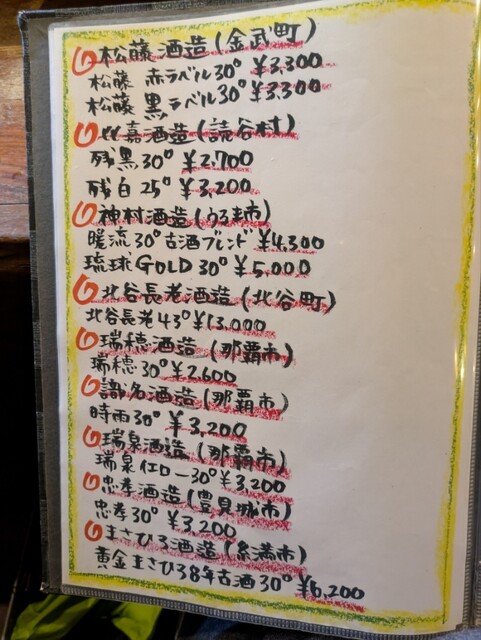 松藤酒造(金武町)
松藤 赤ラベル30° ¥3,300
松藤 黒ラベル30° ¥3,300
比嘉酒造(読谷村)
残黒30° ¥2,700
残白25° ¥3,200
神村酒造(うるま市)
暖流30°古酒ブレンド ¥4,300
琉球GOLD 30° ¥5,000
北谷長老酒造(北谷町)
北谷長老43° ¥13,000
瑞穂酒造(那覇市)
瑞穂30° ¥2,600
識名酒造(那覇市)
時雨30° ¥3,200
瑞泉酒造(那覇市)
瑞泉イエロー30° ¥3,200
忠孝酒造(豊見城市)
忠孝30° ¥3,200
まさひろ酒造(糸満市)
黄金まさひろ8年古酒30° ¥6,200